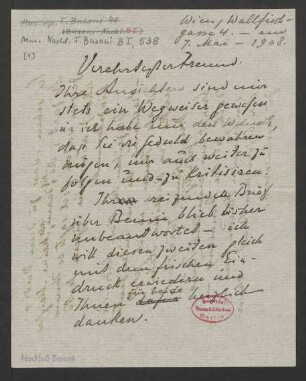 Mus. ep. F. Busoni 41
(Busoni-Nachl. BI)
Mus. Nachl. F. Busoni B I, 538
[1]
Wien, Wallfisch-
gasse 4. – am
7. Mai – 1908.
Verehrtester Freund.
Ihre Ansichten sind mir
stets ein Wegweiser gewesen
u. ich habe nur den Wunsch,
daß Sie die Geduld bewahren
mögen, mir auch weiter zu
folgen und – zu kritisieren.
Ihr reizender Brief
über Berlin blieb bisher
unbeantwortet – ich
will diesen zweiten gleich
mit dem frischen Ein-
druck erwidern und
Ihnen für beide herzlich
danken.
Nachlaß Busoni